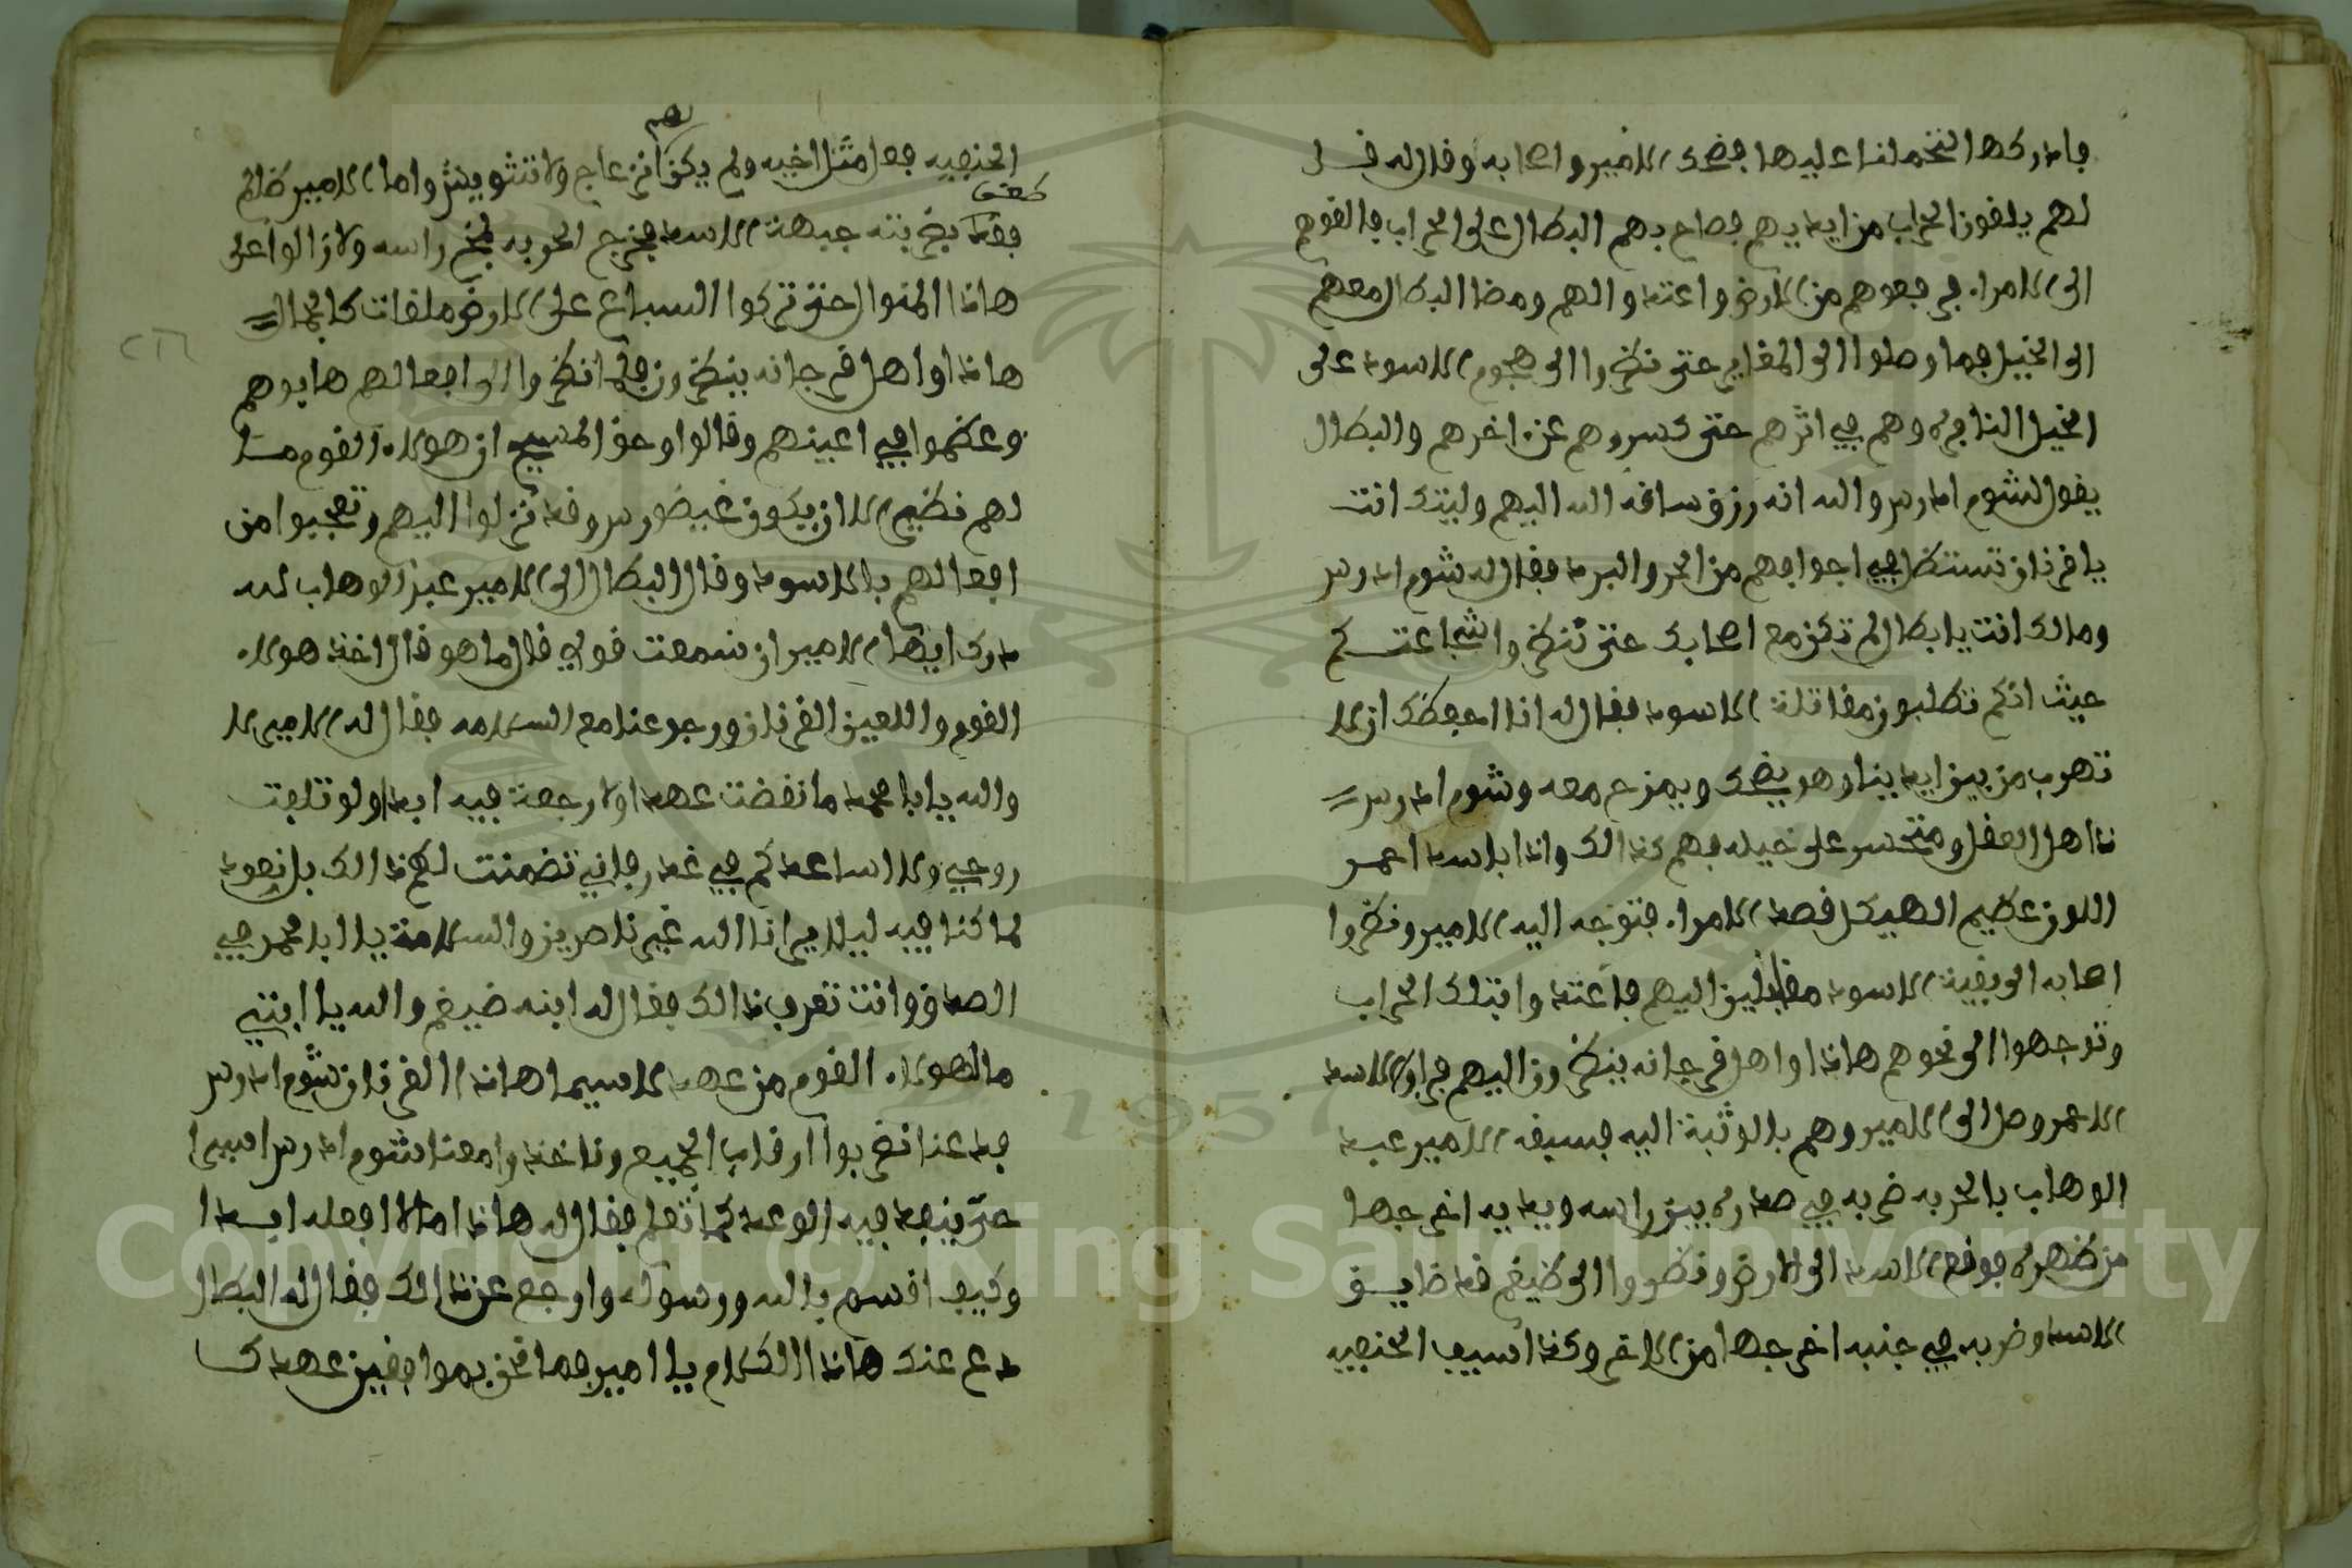 فادركها انتحملنا عليها فضحك الامير واصحابه وقال له قل
لهم يلقون الحراب من ايديهم فصاح بهم البطال على الحراب فالقوهم
الى الامراء فرفعوهم من الارض واعتدوا لهم ومضا البطال معهم
الى الخيل فما وصلوا الى المغاير حتى نظروا الى هجوم الاسود على
الخيل النافره وهم في اثرهم حتى كسروهم عن اخرهم والبطال
يقول لشوم ادرس والله انه رزق ساقه الله اليهم وليتك انت
يا قرنان تستظل في اجوافهم من الحر والبرد فقال له شوم ادرس
ومالك انت يا بطال لم تكن مع اصحابك حتى تنظروا شجاعتكم
حيث انكم تطلبون مقاتلة الاسود فقال له انا احفظك ان لا
تهرب من بين ايدينا وهو يضحك ويمزح معه وشوم ادرس
ذاهل العقل ومتحسر على خيله فهم كذالك واذا باسد احمر
اللون عظيم الهيكل قصد الامراء فتوجه اليه الامير ونظروا
اصحابه الى بقية الاسود مقابلين اليهم فاعتدوا بتلك الحراب
وتوجهوا الى نحوهم هاذا واهل قرجانه ينظرون اليهم فراوا الاسد
الاحمر وصل الى الامير وهم بالوثبة اليه فسبقه الامير عبد
الوهاب بالحربه ضربه في صدره بين راسه ويديه اخرجها
من ظهره فوقع الاسد الى الارض ونظروا الى ظيغم قد ضايق
الاسد وضربه في جنبه اخرجها من الاخر وكذا سيف الحنفيه
الحنفيه فعل مثل اخيه ولم يكن لهم انزعاج ولا تشويش واما الامير ظالم
فقد طعن بحربته جبهة الاسد فخرج الحربه لمخ راسه ولا زالوا على
هاذا المنوال حتى تركوا السباع على الارض ملقات كالجمال
هاذا واهل قرجانه ينظرون فلما نظروا الى افعالهم هابوهم
وعظموا في اعينهم وقالوا وحق المسيح ان هولاء القوم مالـ
لهم نظير الا ان يكون غيضروس وقد نزلوا اليهم وتعجبوا من
افعالهم بالاسود وقال البطال الى الامير عبد الوهاب لله
درك ايها الامير ان سمعت قولي قال ما هو قال اخذ هولاء
القوم واللعين القرنان ورجوعنا مع السلامه فقال له الامير لا
والله يا با محمد ما نقضت عهدا ولا رجعة فيه ابدا ولو تلفت
روحي ولا اساعدكم في غدر فاني تضمنت لهم ذالك بل نعود
لما كنا فيه ليلا يرانا الله غير ناصرين والسلامة يا ابا محمد في
الصدق وانت تعرف ذالك فقال له ابنه ضيغم والله يا ابتي
ما لهولاء القوم من عهد لا سيما هاذا القرنان شوم ادرس
فدعنا نضربوا رقاب الجميع وناخذوا معنا شوم ادرس اسيرا
حتى ينفد فيه الوعد كما تعلم فقال له هاذا ما لا افعله ابدا
وكيف اقسم بالله ورسوله وارجع عن ذالك فقال له البطال
دع عنك هاذا الكلام يا امير فما نحن بموافقين عهدك